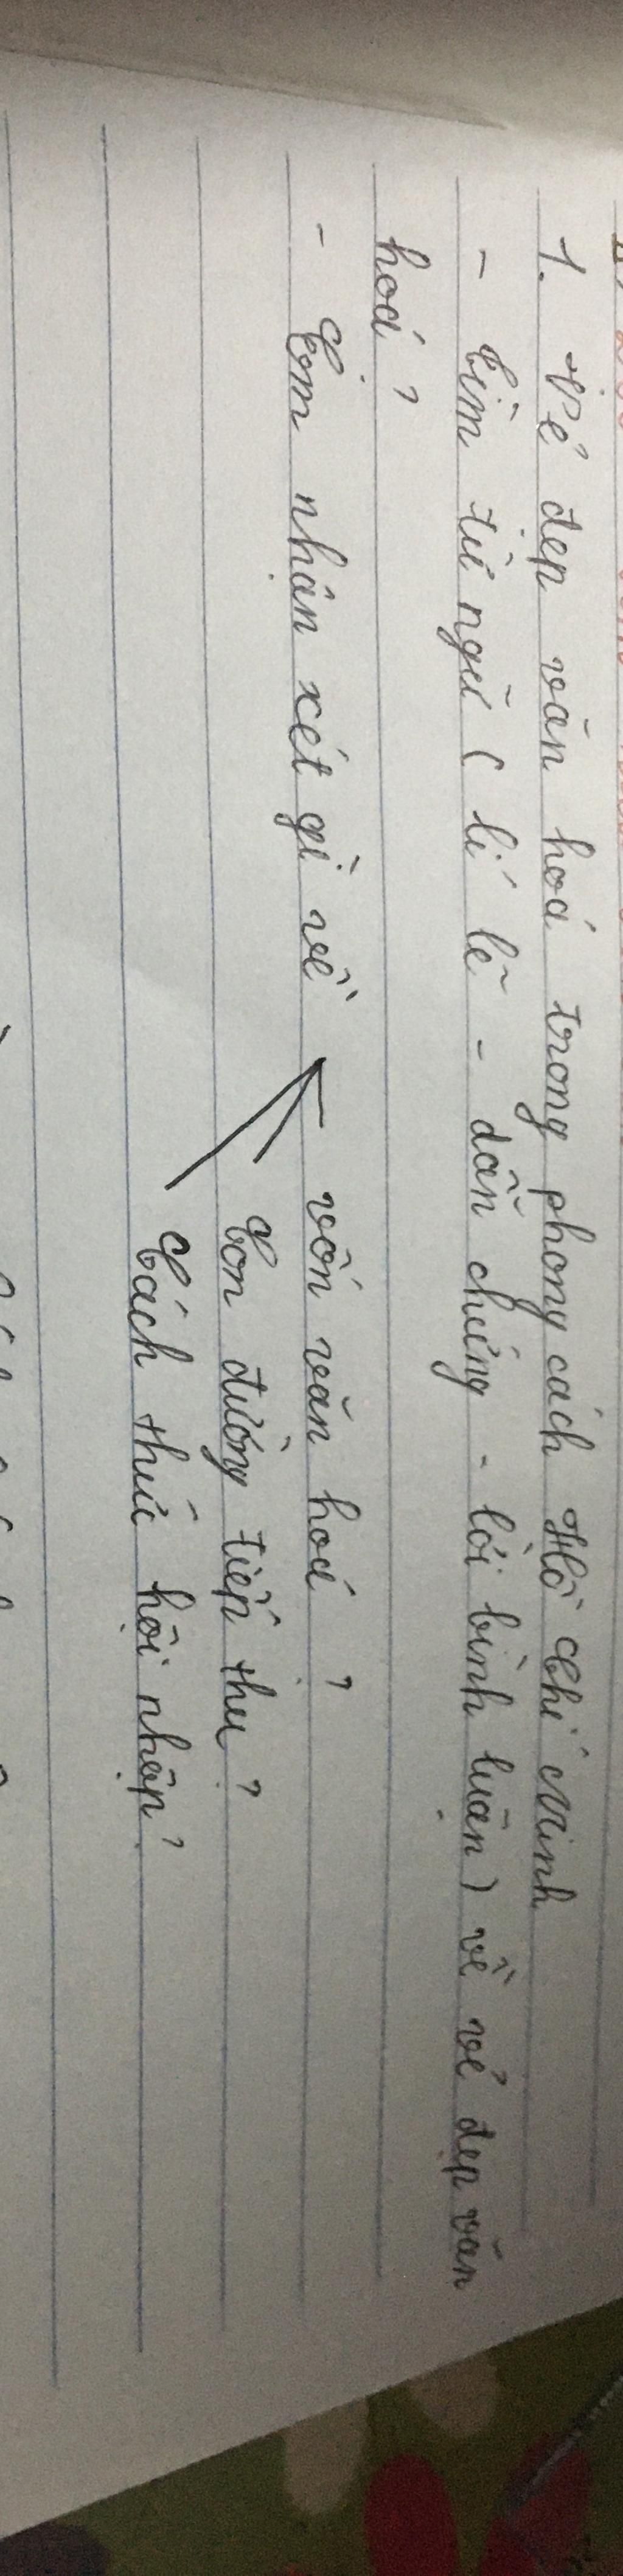 1. Vẻ đẹp văn hoá trong phong cách Hồ Chí Minh
- Tìm từ ngữ ( lí lẽ - dẫn chứng - lời bình luận ) về vẻ đẹp văn
hoá ?
- Em nhận xét gì về vốn văn hoá ?
Con đường tiếp thu ?
Cách thức hội nhập ?